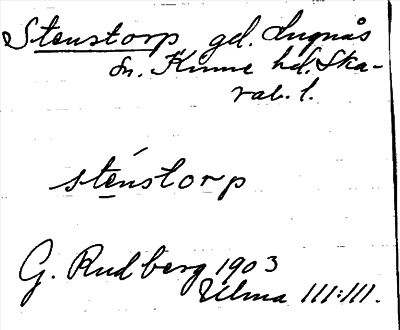 Stenstorp gd. Lugnås
sn. Kinne hd. Ska-
rab. l.
sténstorp
G. Rudberg 1903
Ulma 111:111.